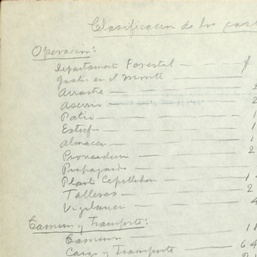 Clasificacion de los gas
Operacion:
Departamento Forestal — $
Gastos en el monte
Arrastre — 2
Aserrio — 2
Patio — 1
Estuf — 1
Almacen — 1
Proveeduria — 2
Propaganda
Plant Cepilladora — 1
Talleres — 2
Vigilancia — 4
Camion y Transporte: 11
Camiones
Carga y Transporte — 64